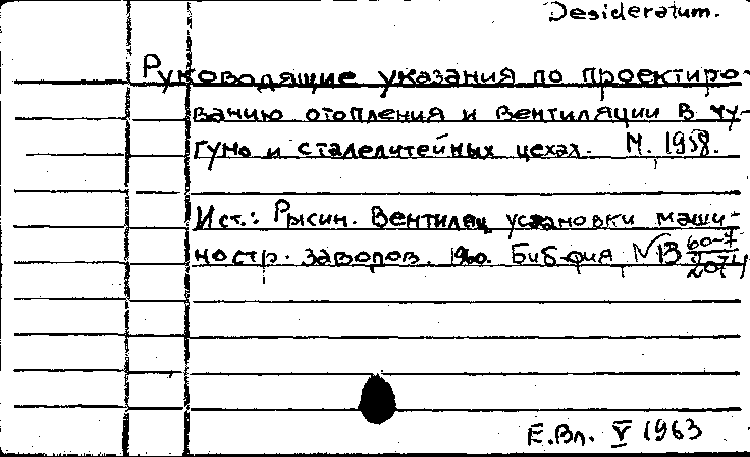 Desideratum.
Руководящие указания по проектиро-
ванию отопления и вентиляции в чу-
гуно и сталелитейных цехах. М. 1958.
Ист.: Рысин. Вентиляц установки маши-
ностр. заводов. 1960. Библ-фия, №В 60-7
2074
Е.Вл. V 1963